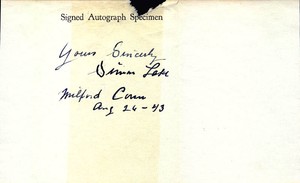 Signed Autograph Specimen
Yours Sincerely
Simon Lake
Milford Conn
Aug 26 - 43